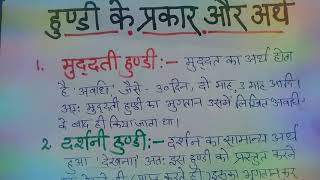 हुण्डी के प्रकार और अर्थ
1. मुद्दती हुण्डी:- मुद्दत का अर्थ होता
है 'अवधि', जैसे - 30 दिन, दो माह, 3 माह आदि।
अतः मुद्दती हुण्डी का भुगतान उसमें लिखित अवधि
के बाद ही किया जाता था।
2. दर्शनी हुण्डी:- दर्शन का सामान्य अर्थ
हुआ 'देखना' अतः इस हुण्डी को प्रस्तुत करने
ही इसका भुगतान कर